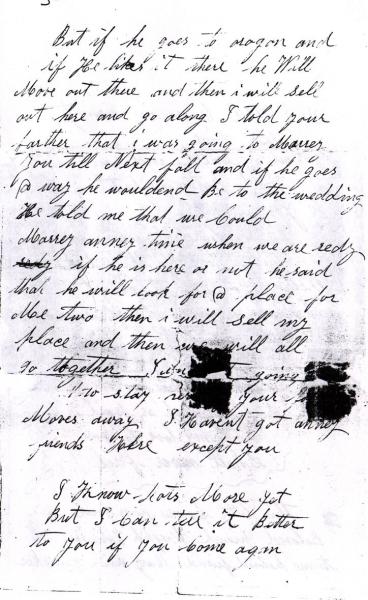 But if he goes to oragon and
if He likes it there he Will
Move out there and then i will sell
out here and go along I told your
farther that i was going to Marrey
You till Next fall and if he goes
@ way he wouldend Be to the wedding
He told me that we Could
Marrey anney time when we are redy
redy if he is here or not he said
that he will look for @ place for
Me two then i will sell my
place and then we will all
go together going
to stay your
Moves away I Havent got anney
friends Here except you
I Know lots More yet
But I Can tell it Better
to You if You Come again